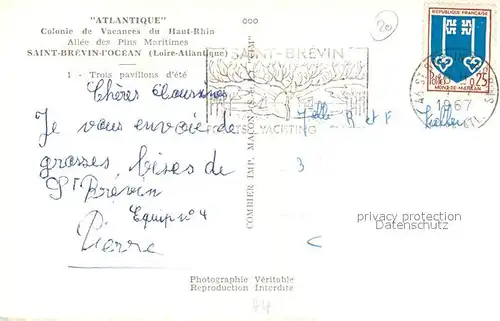 "ATLANTIQUE"
Colonie de Vacances du Haut-Rhin
Allée des Pins Maritimes
SAINT-BRÉVIN-l'OCÉAN (Loire-Atlantique)
1 - Trois pavillons d'été
Chères
Je vous envoie de
grosses bises de
St Brévin
Equip n° 4
Pierre
COMBIER IMP. MACON
SAINT-BRÉVIN
YACHTING
20
REPUBLIQUE FRANÇAISE
0,25
MONT-DE-MARSAN
1967
R et F
3
privacy protection
Datenschutz
Photographie Véritable
Reproduction Interdite
44